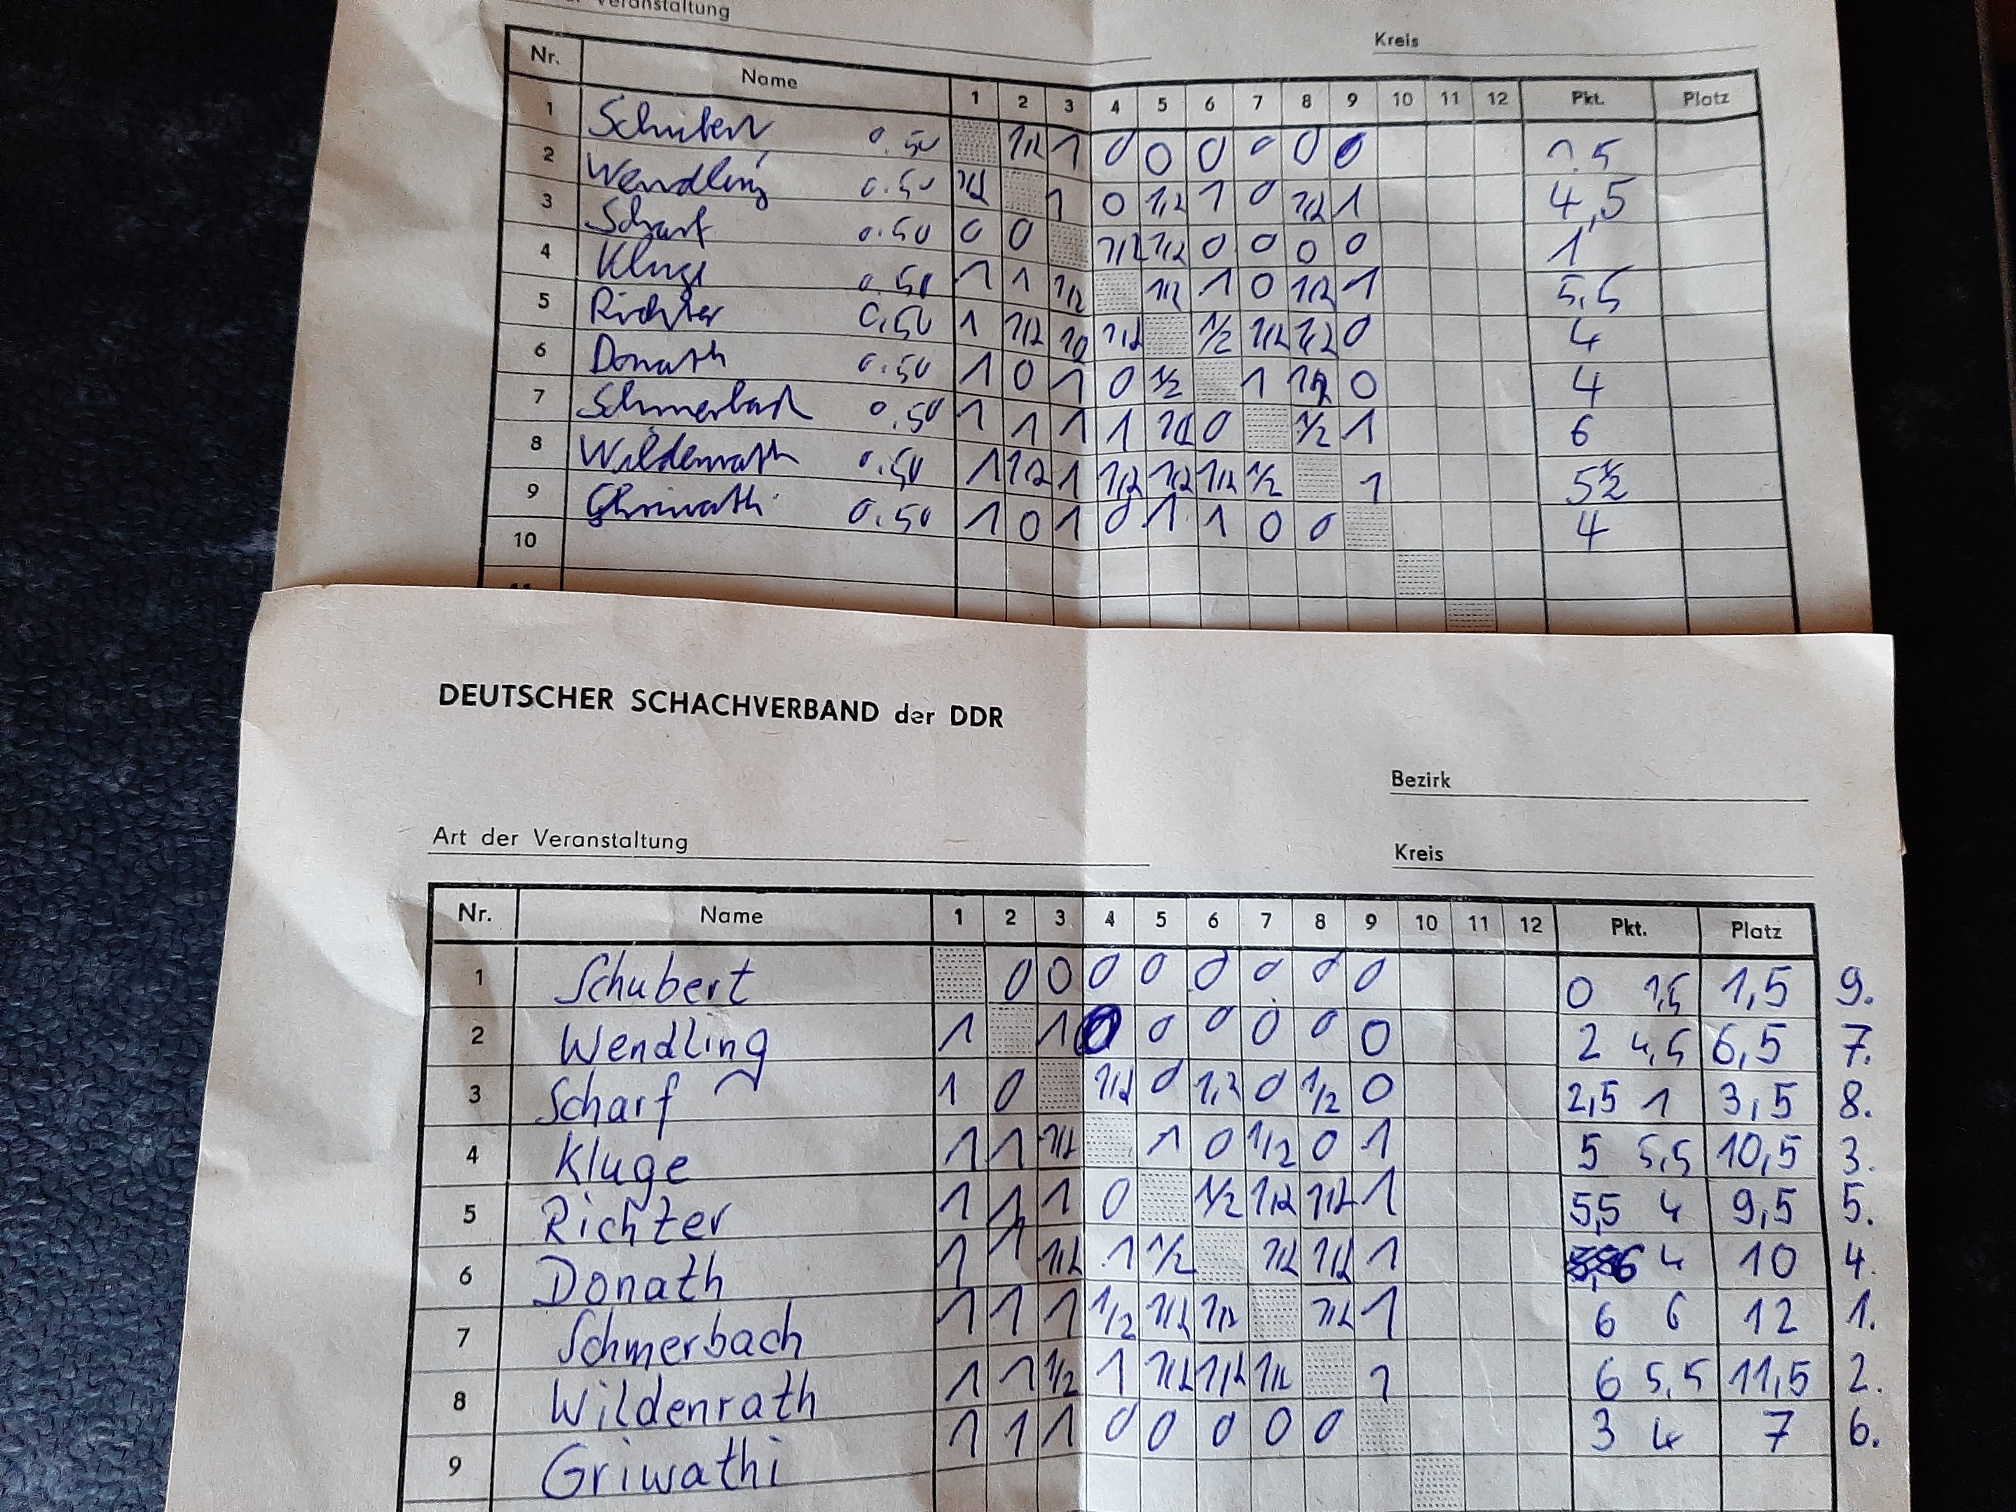 Veranstaltung
Kreis
Nr. Name 1 2 3 4 5 6 7 8 9 10 11 12 Pkt. Platz
1 Schubert 0.50 1/2 1 0 0 0 0 0 0 1.5
2 Wendling 0.50 1/2 1 0 1/2 1 0 1/2 1 4,5
3 Scharf 0.50 0 0 1/2 1/2 0 0 0 0 1
4 Kluge 0.50 1 1 1/2 1/2 1 0 1/2 1 5,5
5 Richter 0,50 1 1/2 1/2 1/2 1/2 1/2 1/2 0 4
6 Donath 0.50 1 0 1 0 1/2 1 1/2 0 4
7 Schmerbach 0.50 1 1 1 1 1/2 0 1/2 1 6
8 Wildenrath 0.50 1 1/2 1 1/2 1/2 1/2 1/2 1 5 1/2
9 0.50 1 0 1 0 1 1 0 0 4
10
DEUTSCHER SCHACHVERBAND der DDR
Bezirk
Art der Veranstaltung
Kreis
Nr. Name 1 2 3 4 5 6 7 8 9 10 11 12 Pkt. Platz
1 Schubert 0 0 0 0 0 0 0 0 0 1,5 1,5 9.
2 Wendling 1 1 0 0 0 0 0 0 2 4,5 6,5 7.
3 Scharf 1 0 1/2 0 1/2 0 1/2 0 2,5 1 3,5 8.
4 Kluge 1 1 1/2 1 0 1/2 0 1 5 5,5 10,5 3.
5 Richter 1 1 1 0 1/2 1/2 1/2 1 5,5 4 9,5 5.
6 Donath 1 1 1/2 1 1/2 1/2 1/2 1 6 4 10 4.
7 Schmerbach 1 1 1 1/2 1/2 1/2 1/2 1 6 6 12 1.
8 Wildenrath 1 1 1/2 1 1/2 1/2 1/2 1 6 5,5 11,5 2.
9 Griwathi 1 1 1 0 0 0 0 0 3 4 7 6.